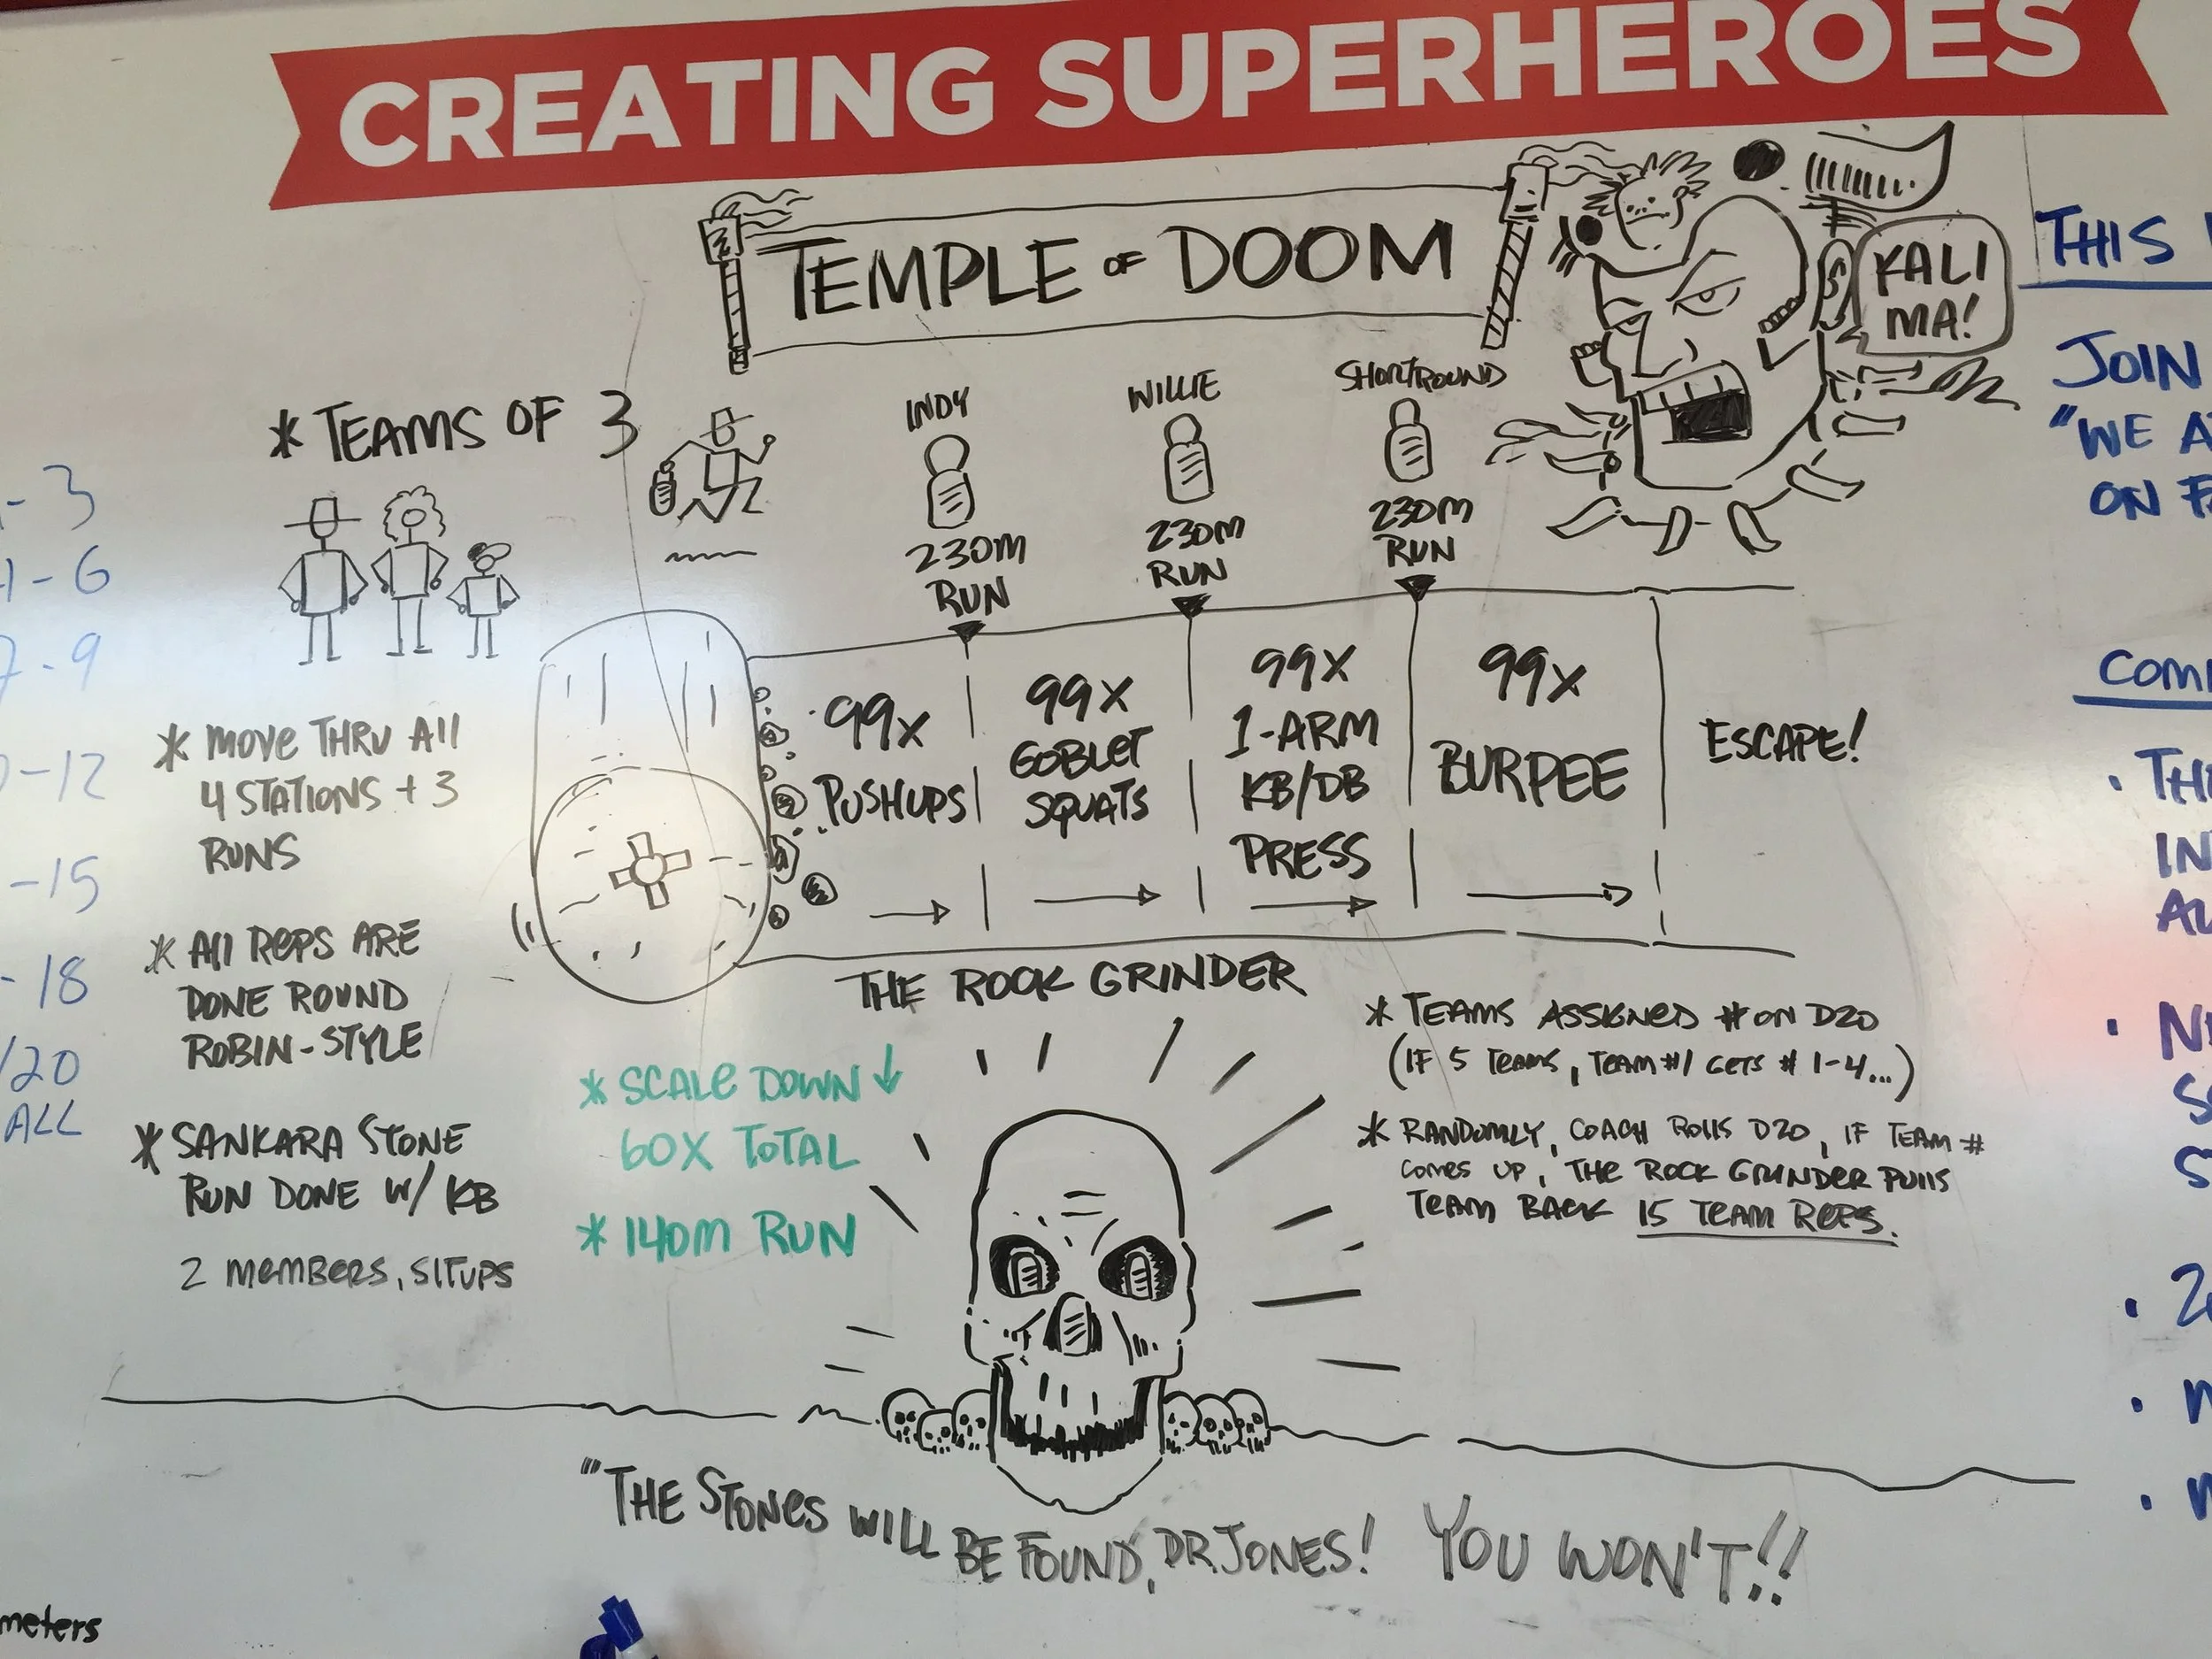 CREATING SUPERHEROES
TEMPLE OF DOOM
KALI
MA!
* TEAMS OF 3
INDY
230M
RUN
WILLIE
230M
RUN
SHORTROUND
230M
RUN
* MOVE THRU All
4 STATIONS + 3
RUNS
* All REPS ARE
DONE ROUND
ROBIN-STYLE
* SANKARA STONE
RUN DONE W/ KB
2 MEMBERS, SITUPS
99x
PUSHUPS
99x
GOBLET
SQUATS
99x
1-ARM
KB/DB
PRESS
99x
BURPEE
ESCAPE!
THE ROCK GRINDER
* SCALE DOWN ↓
60X TOTAL
* 140M RUN
* TEAMS ASSIGNED # ON D20
(IF 5 TEAMS, TEAM #1 GETS # 1-4...)
* RANDOMLY, COACH ROLLS D20, IF TEAM #
COMES UP, THE ROCK GRINDER PULLS
TEAM BACK 15 TEAM REPS.
"THE STONES WILL BE FOUND, DR. JONES! YOU WON'T!!
-3
-6
-9
-12
-15
-18
/20
ALL
meters
THIS
JOIN
"WE
ON
COM
· TH
IN
· N
· 2